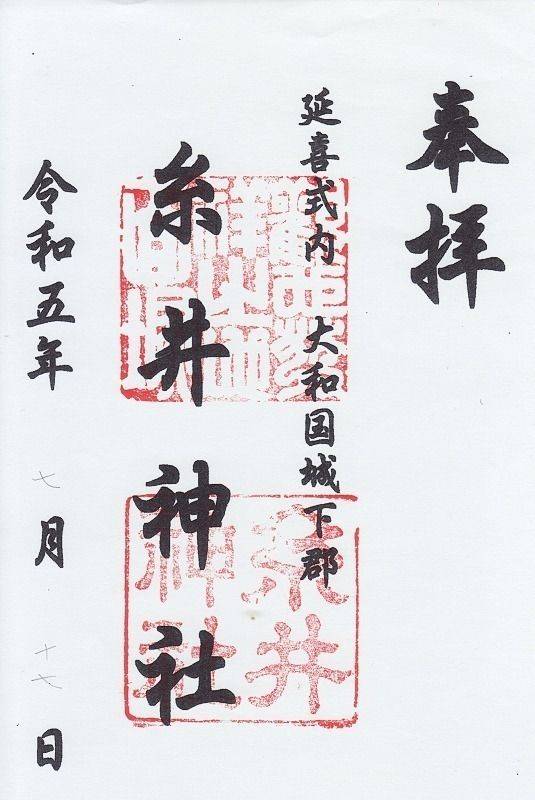 奉拝
延喜式内 大和国城下郡
糸井神社
糸井
神社
令和五年 七月 十七日